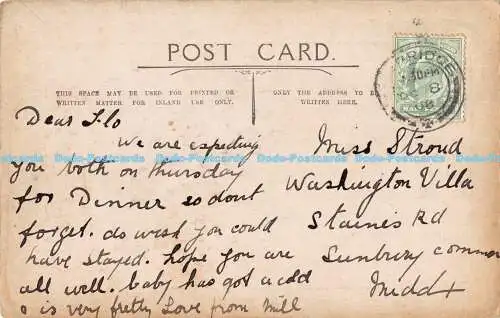 POST CARD.
THIS SPACE MAY BE USED FOR PRINTED OR
WRITTEN MATTER FOR INLAND USE ONLY.
ONLY THE ADDRESS TO BE
WRITTEN HERE.
Dear Flo
We are expecting
you both on Thursday
for Dinner so dont
forget. do wish you could
have stayed. hope you are
all well. baby has got a cold
& is very pretty Love from Mill
Miss Stroud
Washington Villa
Staines Rd
Sunbury common
Middx
RIDGE
30PM
8
08
Dodo-Postcards Dodo-Postcards Dodo-Postcards Dodo-Postcards